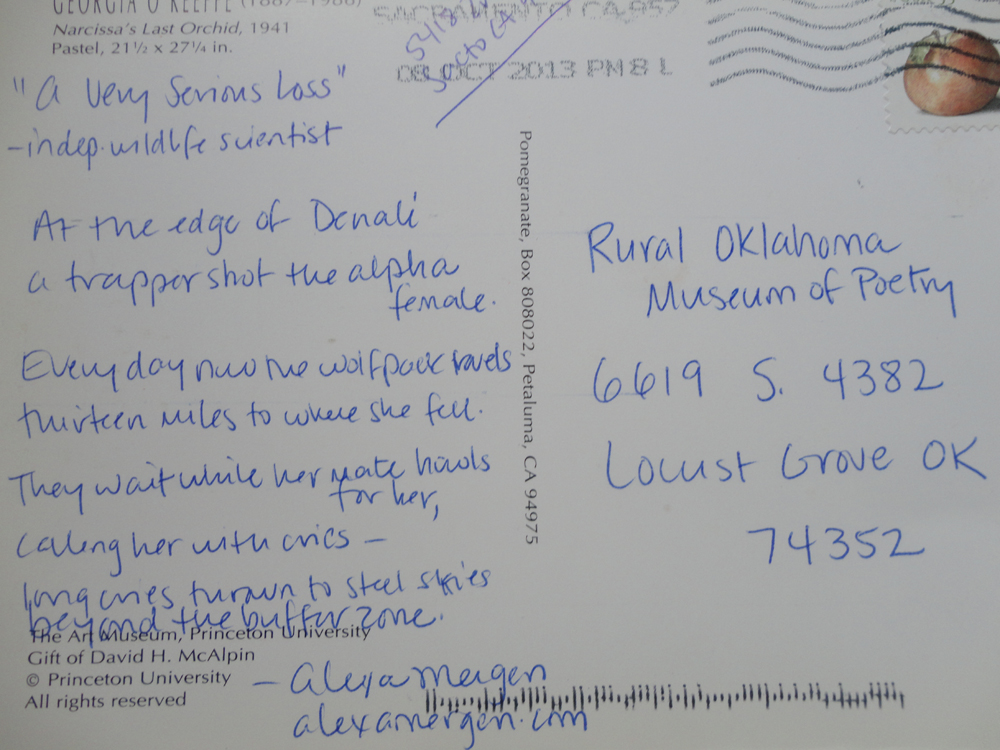 GEORGIA O'KEEFFE (1887–1986)
Narcissa's Last Orchid, 1941
Pastel, 21½ x 27¼ in.
SACRAMENTO CA 957
08 OCT 2013 PM 8 L
"A Very Serious Loss"
-indep. wildlife scientist
At the edge of Denali
a trapper shot the alpha
female.
Every day now the wolfpack travels
thirteen miles to where she fell.
They wait while her mate howls
for her,
calling her with cries —
long cries thrown to steel skies
beyond the buffer zone.
The Art Museum, Princeton University
Gift of David H. McAlpin
© Princeton University
All rights reserved
— Alexa Mergen
alexamergen.com
Pomegranate, Box 808022, Petaluma, CA 94975
Rural Oklahoma
Museum of Poetry
6619 S. 4382
Locust Grove OK
74352